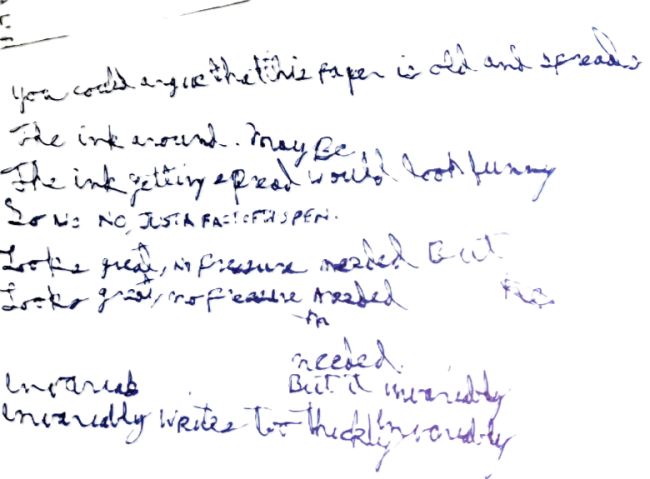 you could argue that this paper is old and spreads
The ink around. Maybe
The ink getting spread would look funny
So NO, JUST A FACT OF THIS PEN.
Looks great, no pressure needed But
Looks great, no pressure needed
needed.
Invariab But it invariably
Invariably writes too thickly Invariably